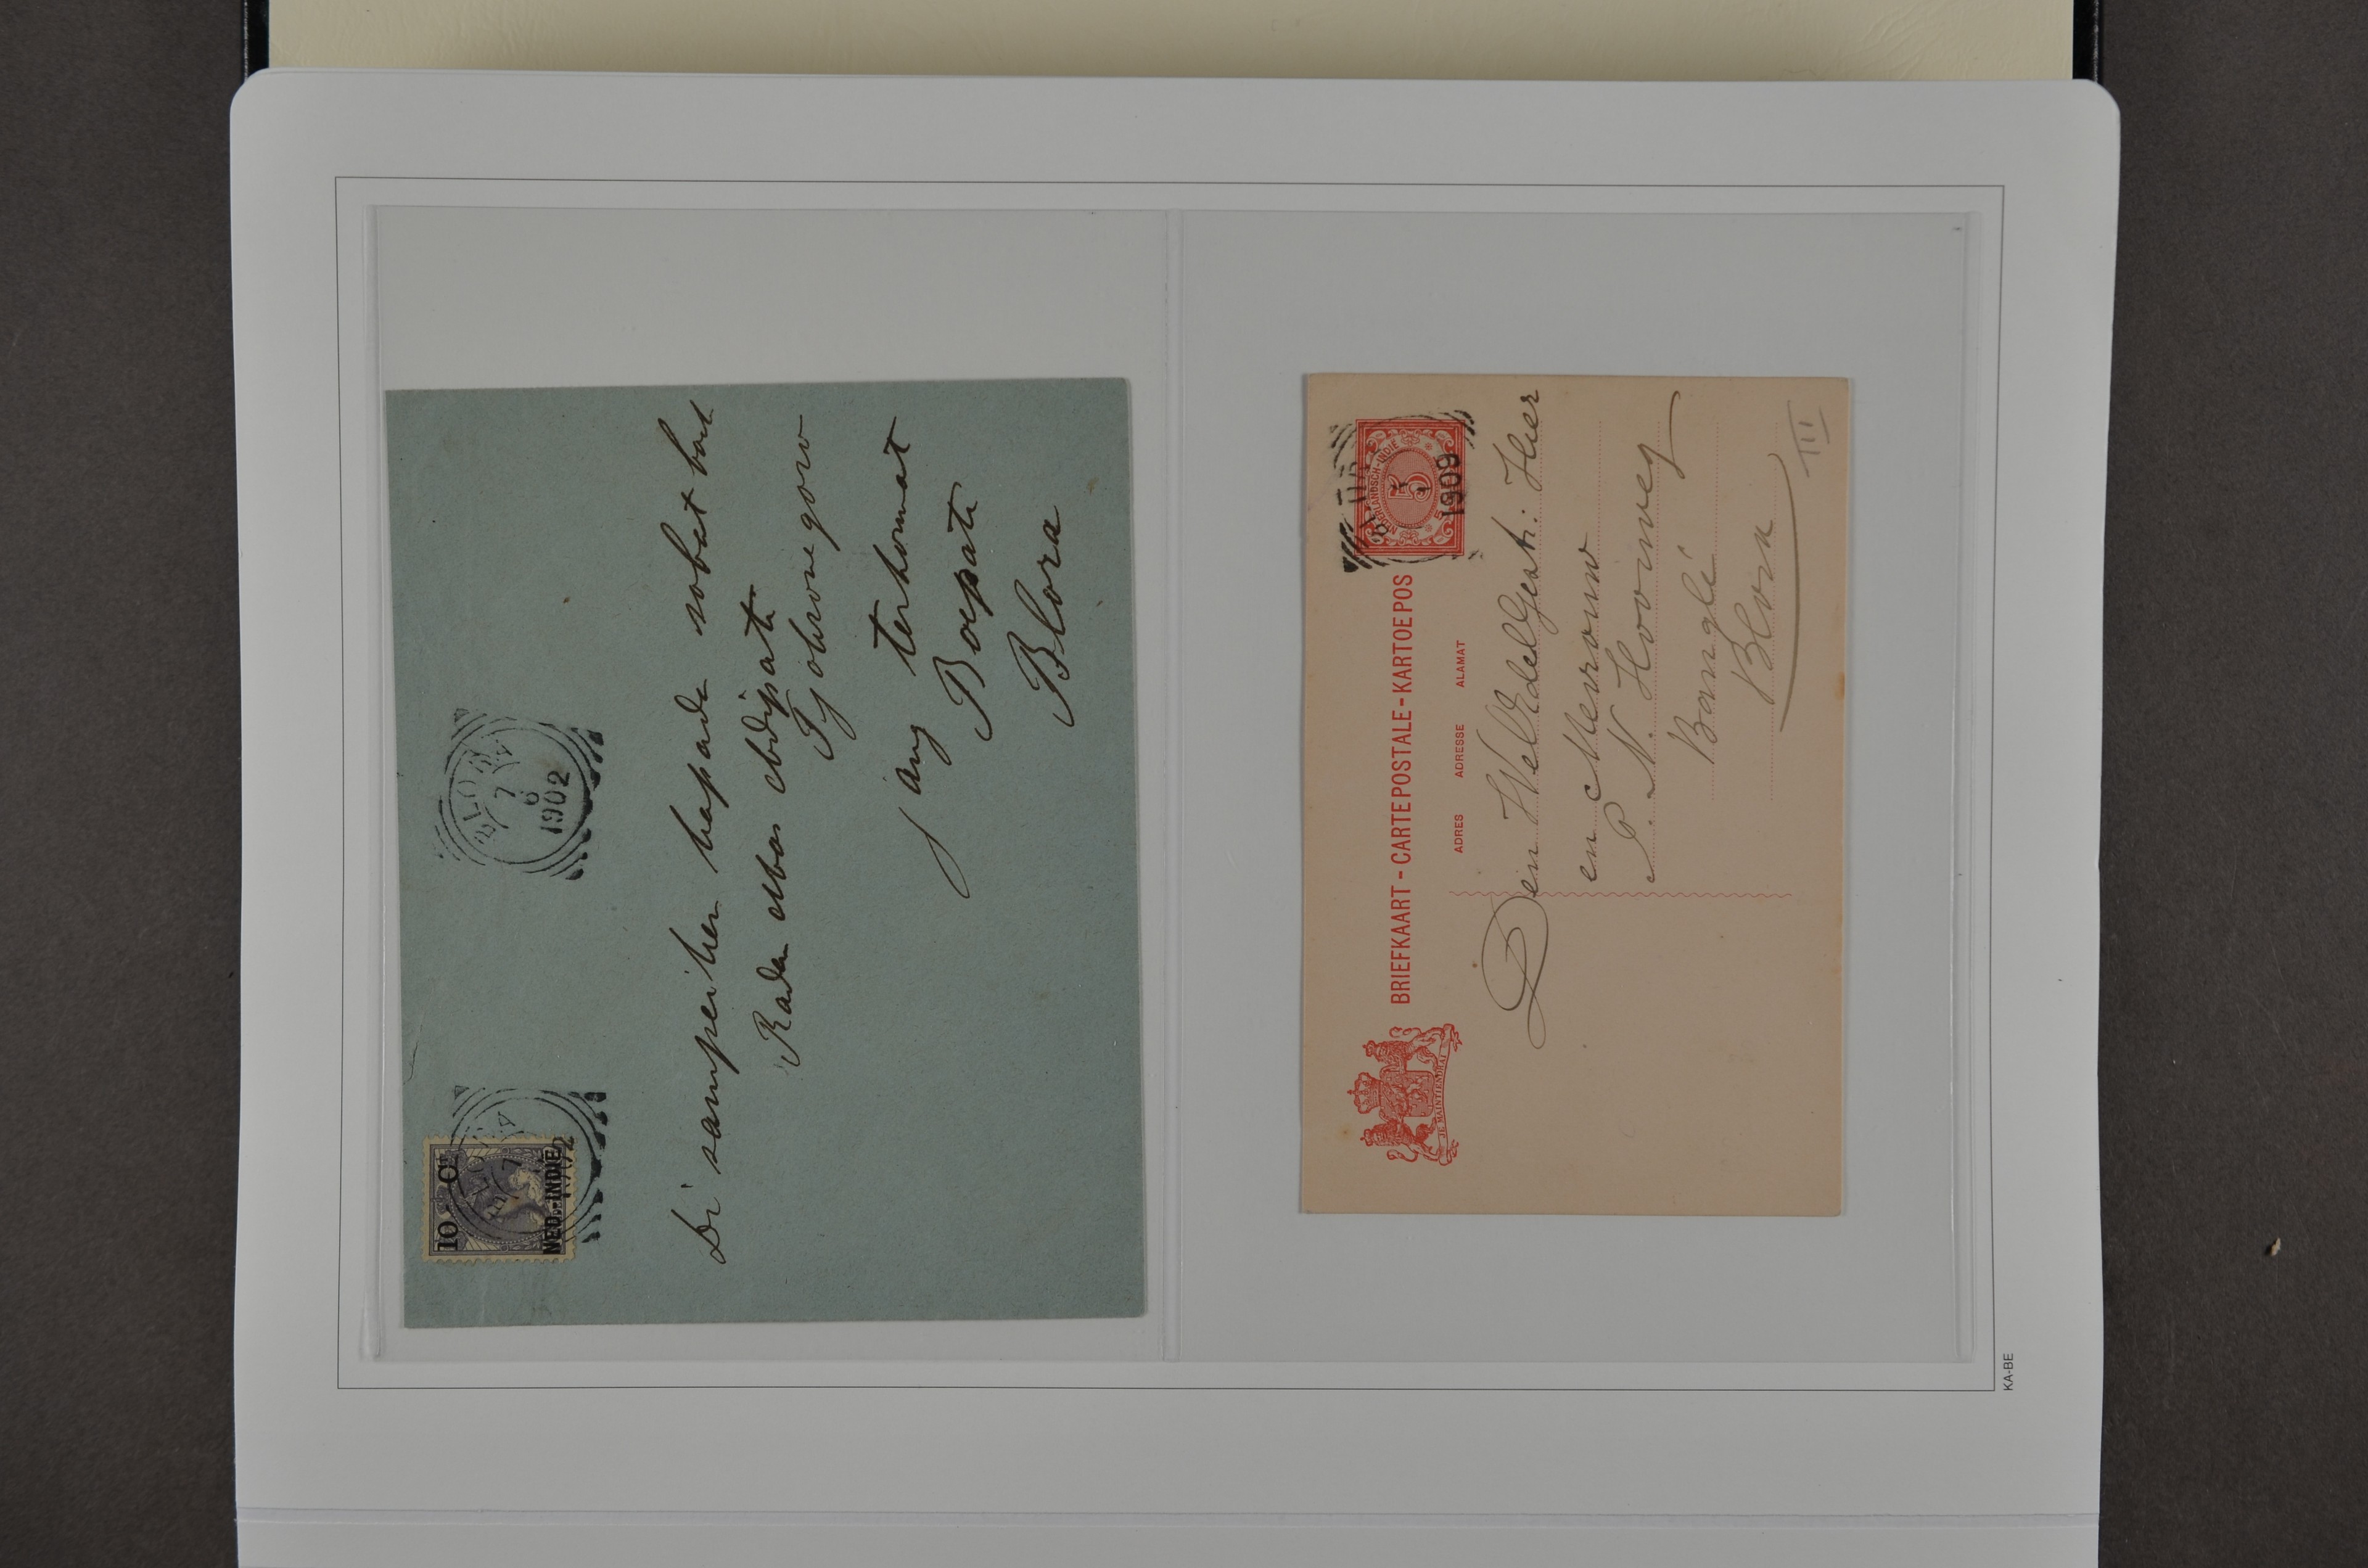 10 Ct
NED.-INDIË
BLORA
7
6
1902
Di sampeiken kapada sobat baik
Raden Mas Adipati
Tjokronegoro
jang terhormat
Boepati
Blora
NEDERLANDSCH-INDIË
5
1909
BRIEFKAART - CARTE POSTALE - KARTOE POS
JE MAINTIENDRAI
ADRES ADRESSE ALAMAT
Den WelEdelGestr: Heer
en Mevrouw
P. N. Hooinveg
Banglé
Blora
III
KA-BE